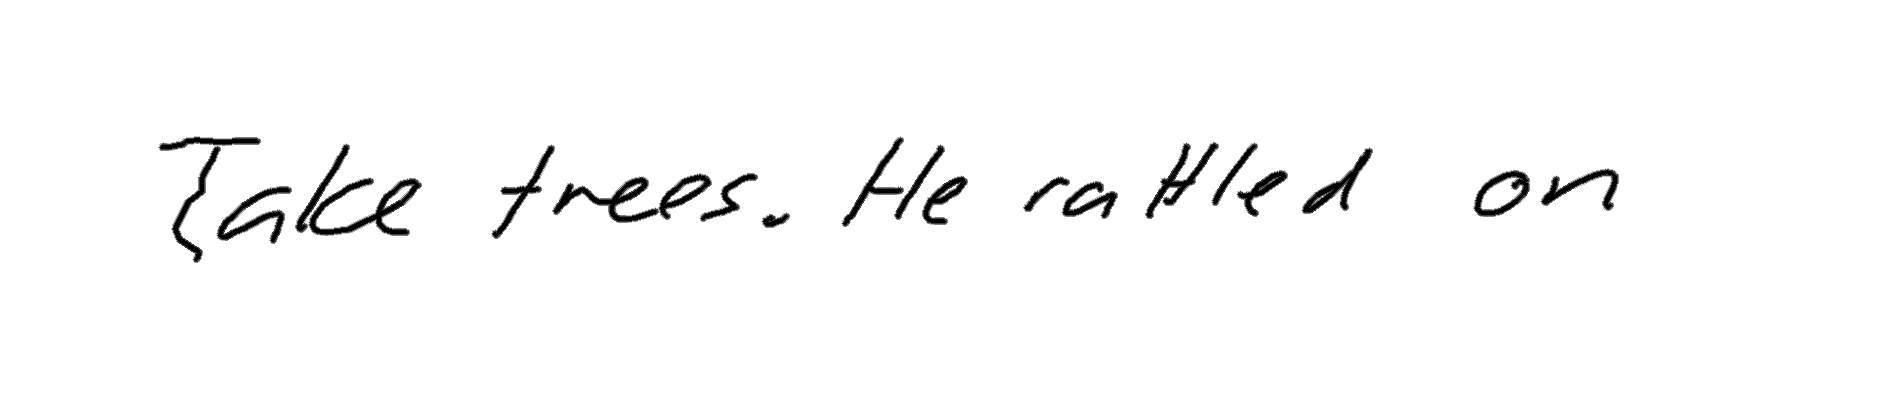 Take trees. He rattled on